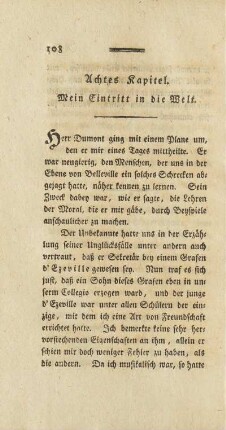 108
Achtes Kapitel.
Mein Eintritt in die Welt.
Herr Dumont ging mit einem Plane um,
den er mir eines Tages mittheilte. Er
war neugierig, den Menschen, der uns in der
Ebene von Belleville ein solches Schrecken ab-
gejagt hatte, näher kennen zu lernen. Sein
Zweck dabey war, wie er sagte, die Lehren
der Moral, die er mir gäbe, durch Beyspiele
anschaulicher zu machen.
Der Unbekannte hatte uns in der Erzäh-
lung seiner Unglücksfälle unter andern auch
vertraut, daß er Sekretär bey einem Grafen
d'Ezeville gewesen sey. Nun traf es sich
just, daß ein Sohn dieses Grafen eben in un-
serm Collegio erzogen ward, und der junge
d'Ezeville war unter allen Schülern der ein-
zige, mit dem ich eine Art von Freundschaft
errichtet hatte. Ich bemerkte keine sehr her-
vorstechenden Eigenschaften an ihm, allein er
schien mir doch weniger Fehler zu haben, als
die andern. Da ich musikalisch war, so hatte